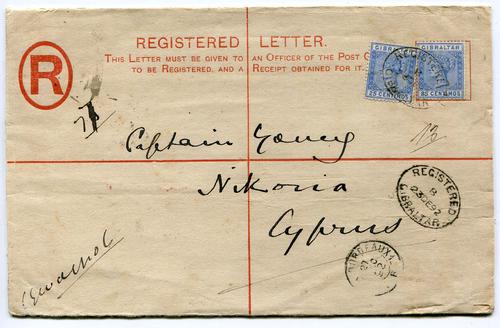 REGISTERED LETTER.
THIS LETTER MUST BE GIVEN TO AN OFFICER OF THE POST
TO BE REGISTERED, AND A RECEIPT OBTAINED FOR IT.
R
GIBRALTAR GIBRALTAR
25 CENTIMOS
REGISTERED
13
Captain Young
Nikosia
Cyprus
REGISTERED
23 DE 92
GIBRALTAR
BORDEAUX